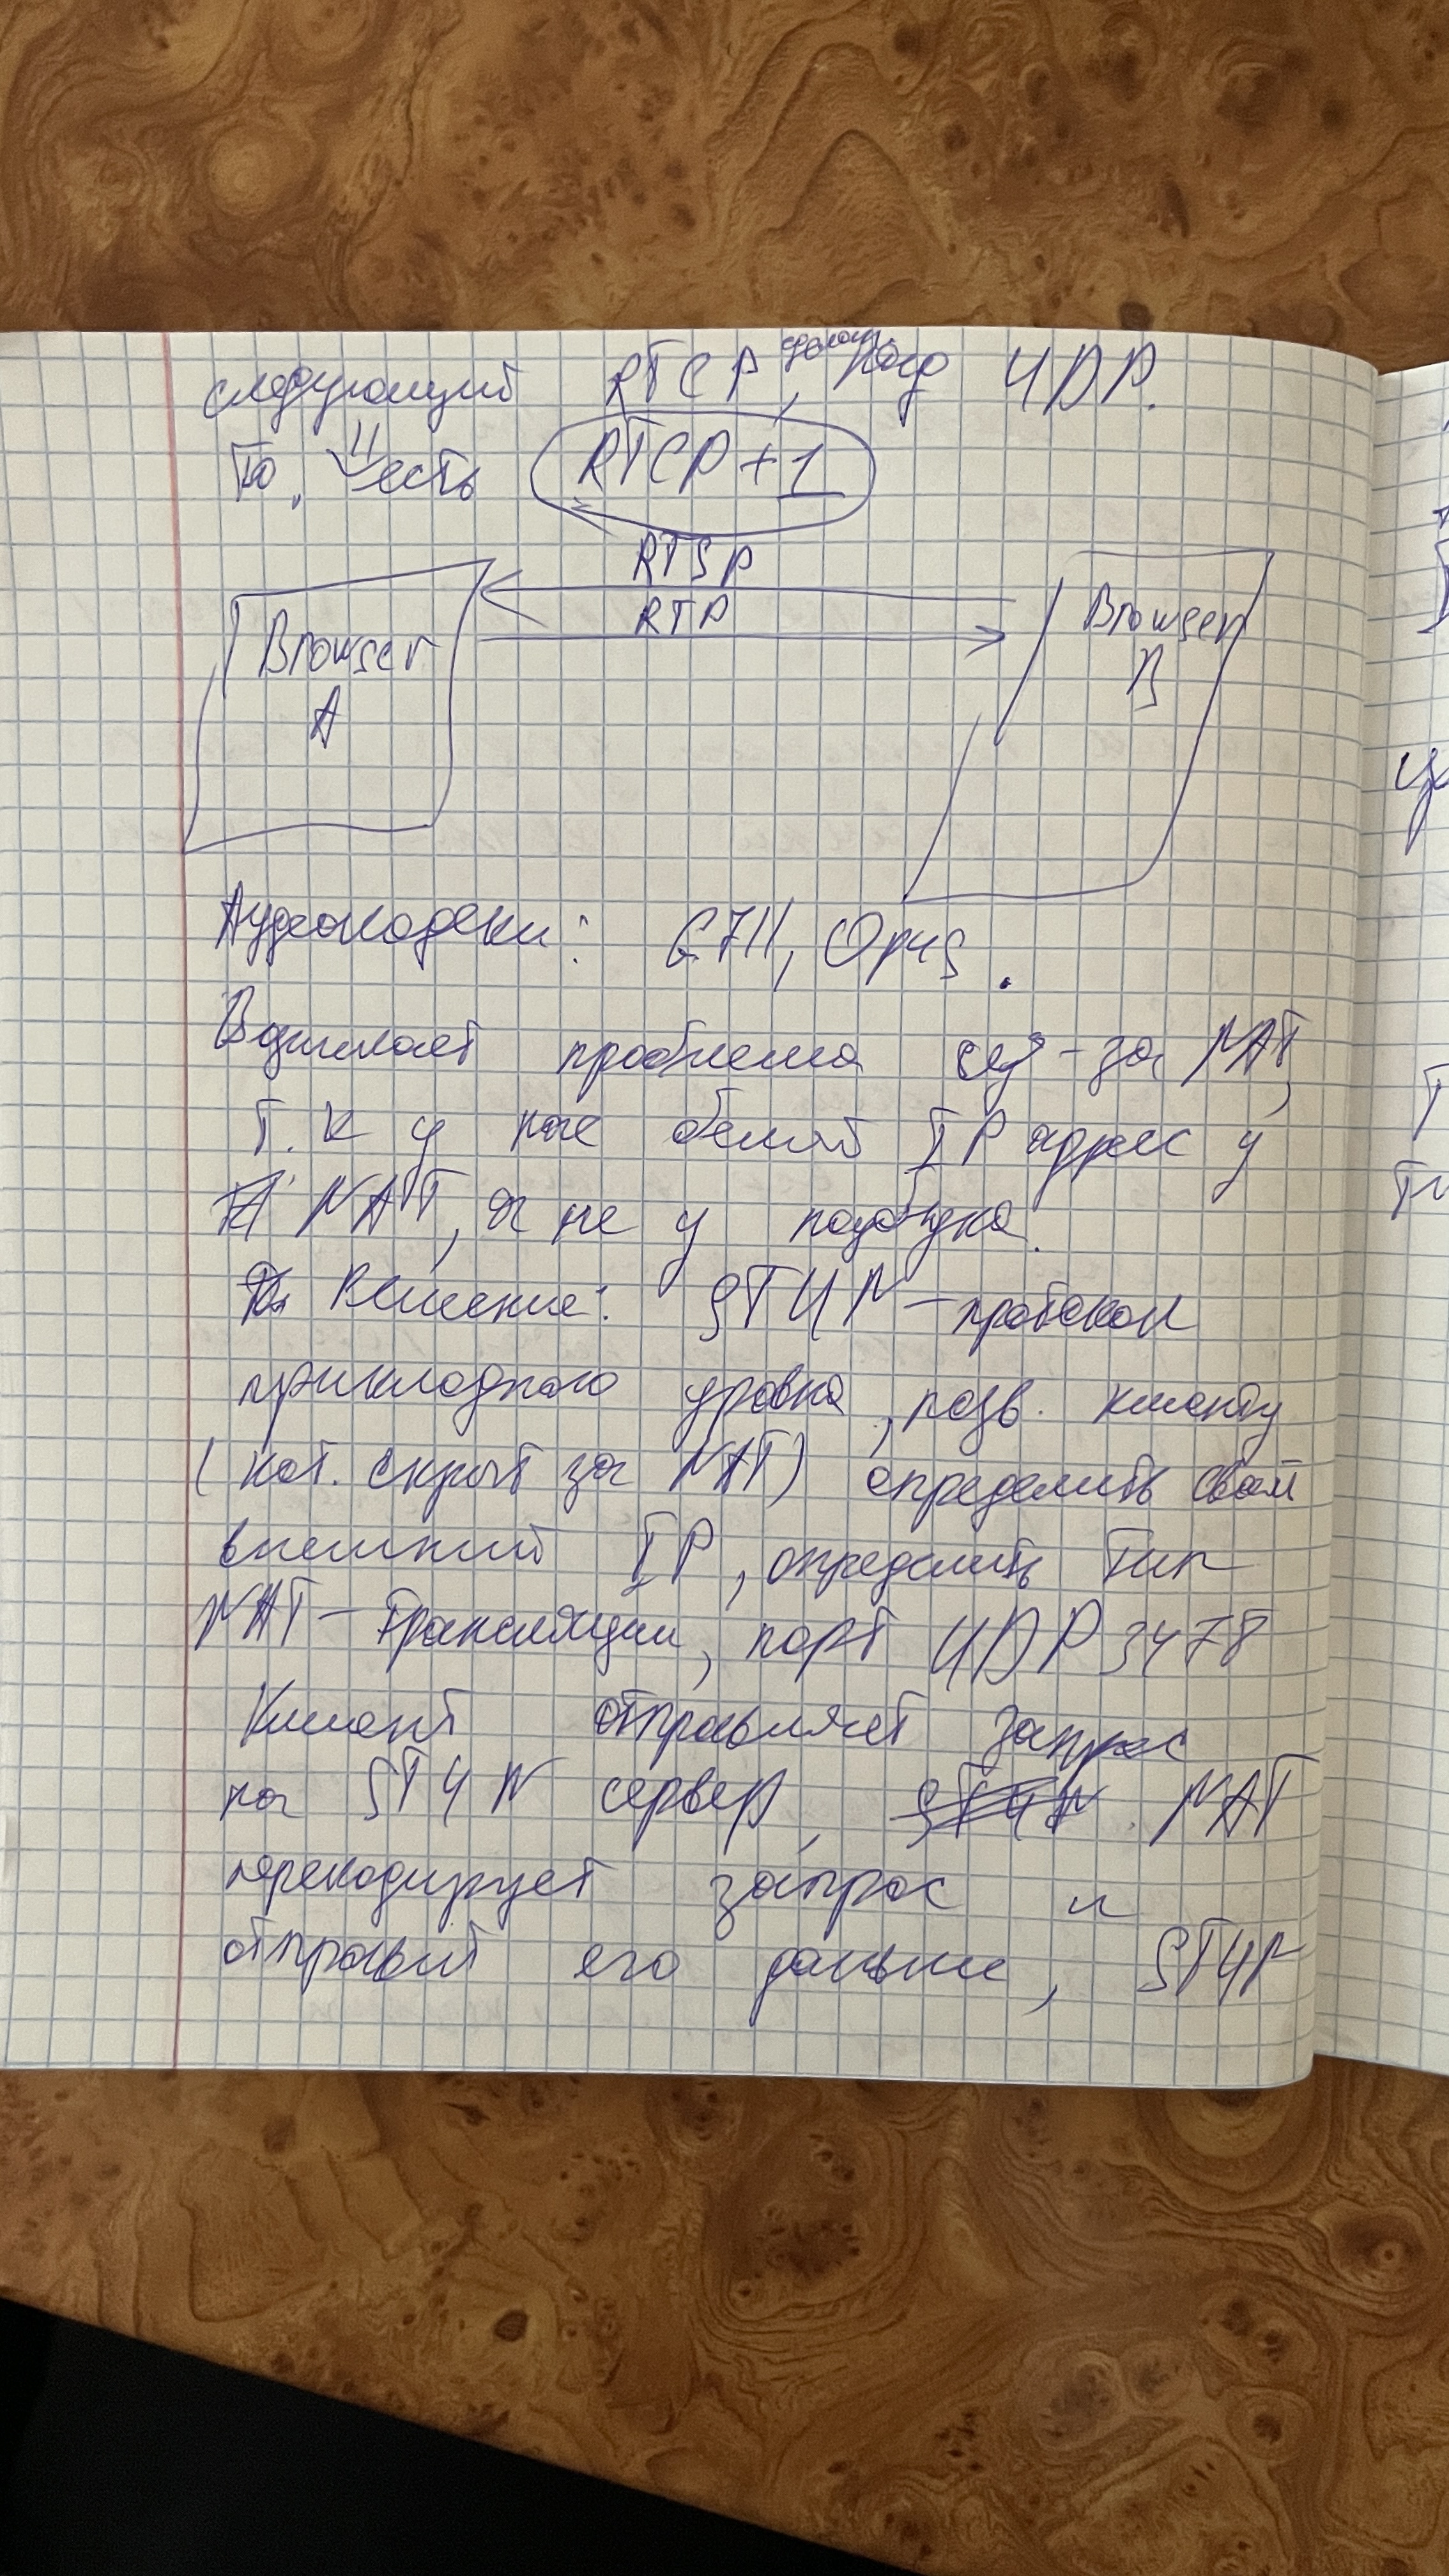 следующий RTCP, под UDP.
То, есть RTCP + 1
RTSP
RTP
Browser
A
Browser
B
Аудиокодеки: G711, Opus.
Возникает проблема из-за NAT,
т.к у нас белый IP адрес у
NAT, а не у ноутбука.
Решение: STUN - протокол
прикладного уровня, позв. клиенту
(кот. скрыт за NAT) определить свой
внешний IP, определить тип
NAT-трансляции, порт UDP 3478
Клиент отправляет запрос
на STUN сервер, NAT
перекодирует запрос и
отправит его дальше, STUN